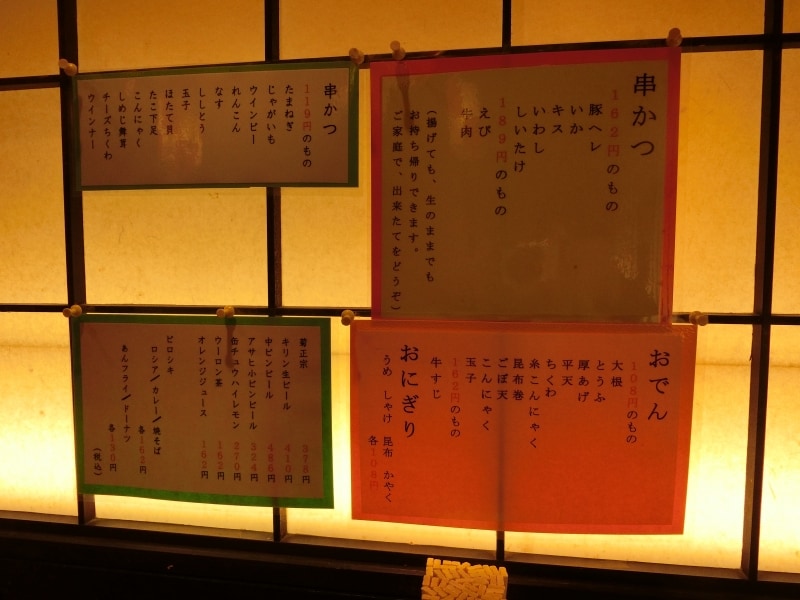 串かつ
119円のもの
たまねぎ
じゃがいも
ウインピー
れんこん
なす
ししとう
玉子
ほたて貝
たこ下足
こんにゃく
しめじ舞茸
チーズちくわ
ウインナー
串かつ
162円のもの
豚ヘレ
いか
キス
いわし
しいたけ
189円のもの
えび
牛肉
(揚げても、生のままでも
お持ち帰りできます。
ご家庭で、出来たてをどうぞ)
菊正宗 378円
キリン生ビール 410円
中ビンビール 486円
アサヒ小ビンビール 324円
缶チュウハイレモン 270円
ウーロン茶 162円
オレンジジュース 162円
ピロシキ
ロシア/カレー/焼そば
各162円
あんフライ/ドーナツ
各130円
(税込)
おでん
108円のもの
大根
とうふ
厚あげ
平天
ちくわ
糸こんにゃく
昆布巻
ごぼ天
こんにゃく
玉子
162円のもの
牛すじ
おにぎり
うめ しゃけ 昆布 かやく
各108円